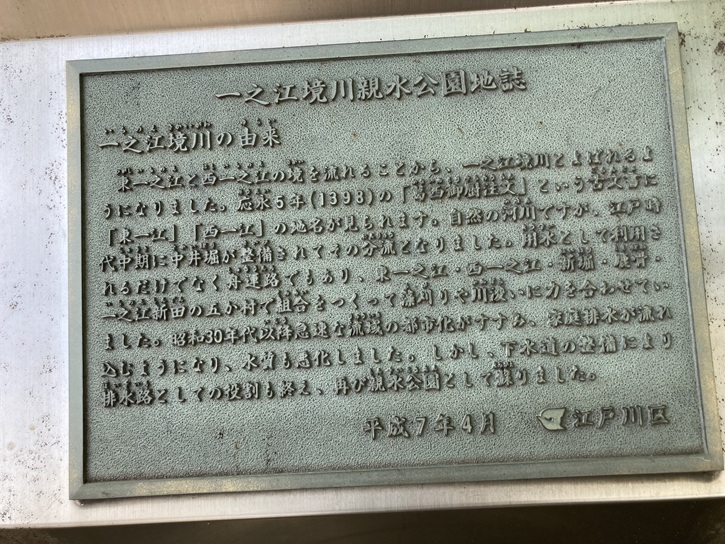 一之江境川親水公園地誌
一之江境川の由来
東一之江と西一之江の境を流れることから、一之江境川とよばれるよ
うになりました。応永5年(1398)の「葛西御厨注文」という古文書に
「東一江」「西一江」の地名が見られます。自然の河川ですが、江戸時
代中期に中井堀が整備されてその分流となりました。用水として利用さ
れるだけでなく舟運路でもあり、東一之江・西一之江・新堀・
一之江新田の五か村で組合をつくって藻刈りや川浚いに力を合わせてい
ました。昭和30年代以降急速な流域の都市化がすすみ、家庭排水が流れ
込むようになり、水質も悪化しました。しかし、下水道の整備により
排水路としての役割も終え、再び親水公園として蘇りました。
平成7年4月 江戸川区